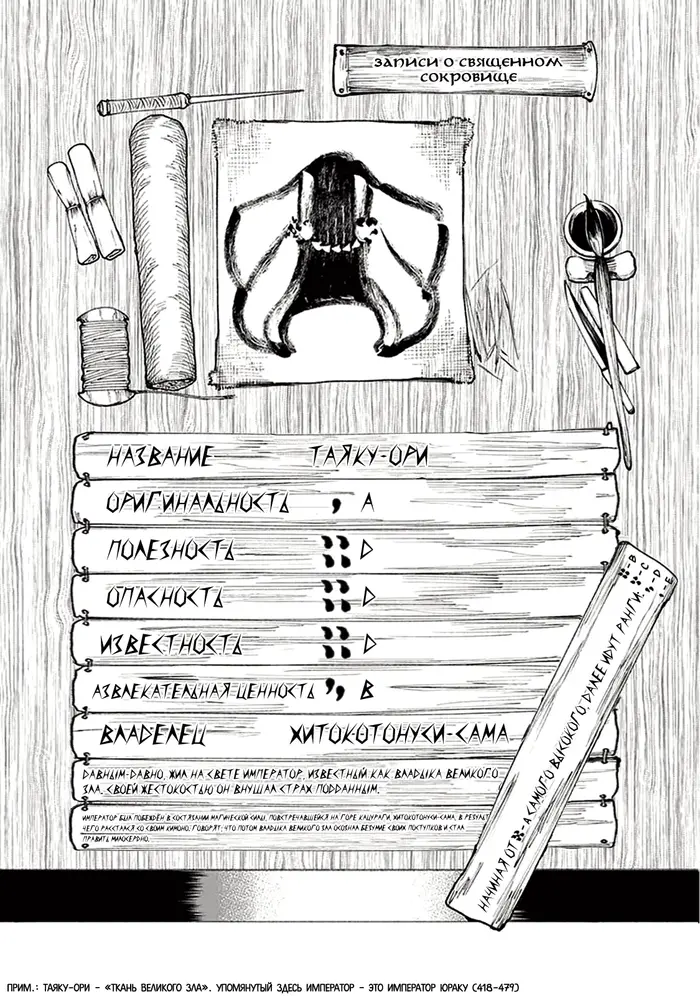 ЗАПИСИ О СВЯЩЕННОМ
СОКРОВИЩЕ
НАЗВАНИЕ ТАЯКУ-ОРИ
ОРИГИНАЛЬНОСТЬ A
ПОЛЕЗНОСТЬ D
ОПАСНОСТЬ D
ИЗВЕСТНОСТЬ D
АЗВЛЕКАТЕЛЬНАЯ ЦЕННОСТЬ B
ВЛАДЕЛЕЦ ХИТОКОТОНУСИ-САМА
ДАВНЫМ-ДАВНО, ЖИЛ НА СВЕТЕ ИМПЕРАТОР, ИЗВЕСТНЫЙ КАК ВЛАДЫКА ВЕЛИКОГО
ЗЛА. СВОЕЙ ЖЕСТОКОСТЬЮ ОН ВНУШАЛ СТРАХ ПОДДАННЫМ.
ИМПЕРАТОР БЫЛ ПОБЕЖДЁН В СОСТЯЗАНИИ МАГИЧЕСКОЙ СИЛЫ, ПОВСТРЕЧАВШЕЙСЯ НА ГОРЕ КАЦУРАГИ, ХИТОКОТОНУСИ-САМА, В РЕЗУЛЬТ
ЧЕГО РАССТАЛСЯ СО СВОИМ КИМОНО. ГОВОРЯТ, ЧТО ПОТОМ ВЛАДЫКА ВЕЛИКОГО ЗЛА ОСОЗНАЛ БЕЗУМИЕ СВОИХ ПОСТУПКОВ И СТАЛ
ПРАВИТЬ МИЛОСЕРДНО.
НАЧИНАЯ ОТ -А САМОГО ВЫСОКОГО, ДАЛЕЕ ИДУТ РАНГИ: -B
-C
-D
-E
ПРИМ.: ТАЯКУ-ОРИ – «ТКАНЬ ВЕЛИКОГО ЗЛА». УПОМЯНУТЫЙ ЗДЕСЬ ИМПЕРАТОР – ЭТО ИМПЕРАТОР ЮРАКУ (418-479)